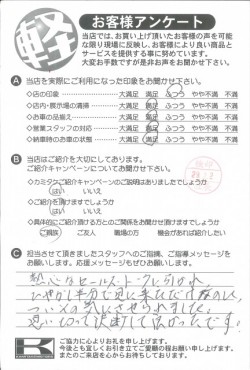 軽
お客様アンケート
当店では、お買い上げ頂いたお客様の声を可能
な限り現場に反映し、お客様により良い商品と
サービスを提供する事に努めています。
大変お手数ですが是非お声をお聞かせ下さい。
A 当店を実際にご利用になった印象をお聞かせ下さい。
◇店の印象 大満足 満足 ふつう やや不満 不満
◇店内・展示場の清掃 大満足 満足 ふつう やや不満 不満
◇お車の品揃え 大満足 満足 ふつう やや不満 不満
◇営業スタッフの対応 大満足 満足 ふつう やや不満 不満
◇納車時のお車の状態 大満足 満足 ふつう やや不満 不満
B 当店はご紹介を大切にしております。
ご紹介キャンペーンについてお聞かせ下さい。
◇カミタケご紹介キャンペーンのご説明はありましたでしょうか
はい いいえ
◇ご紹介を頂けますでしょうか
はい いいえ
◇具体的にご紹介頂ける方とのご関係をお聞かせ頂けますでしょうか
ご親族 ご友人 職場の方 機会があれば紹介したい
C 担当させて頂きましたスタッフへのご指摘、ご指導、メッセージを
お願いします。応援メッセージもぜひお願いします。
熱心なセールストークに引かれ
ひやかし半分で見に来ただけなのに、
つい その気にさせられました。
思い切って決断して良かったです!
K
ご協力に心よりお礼を申し上げます。
今後とも宜しくお引き立てご愛顧の程お願い申し上げます。
またのご来店を心からお待ちしております。